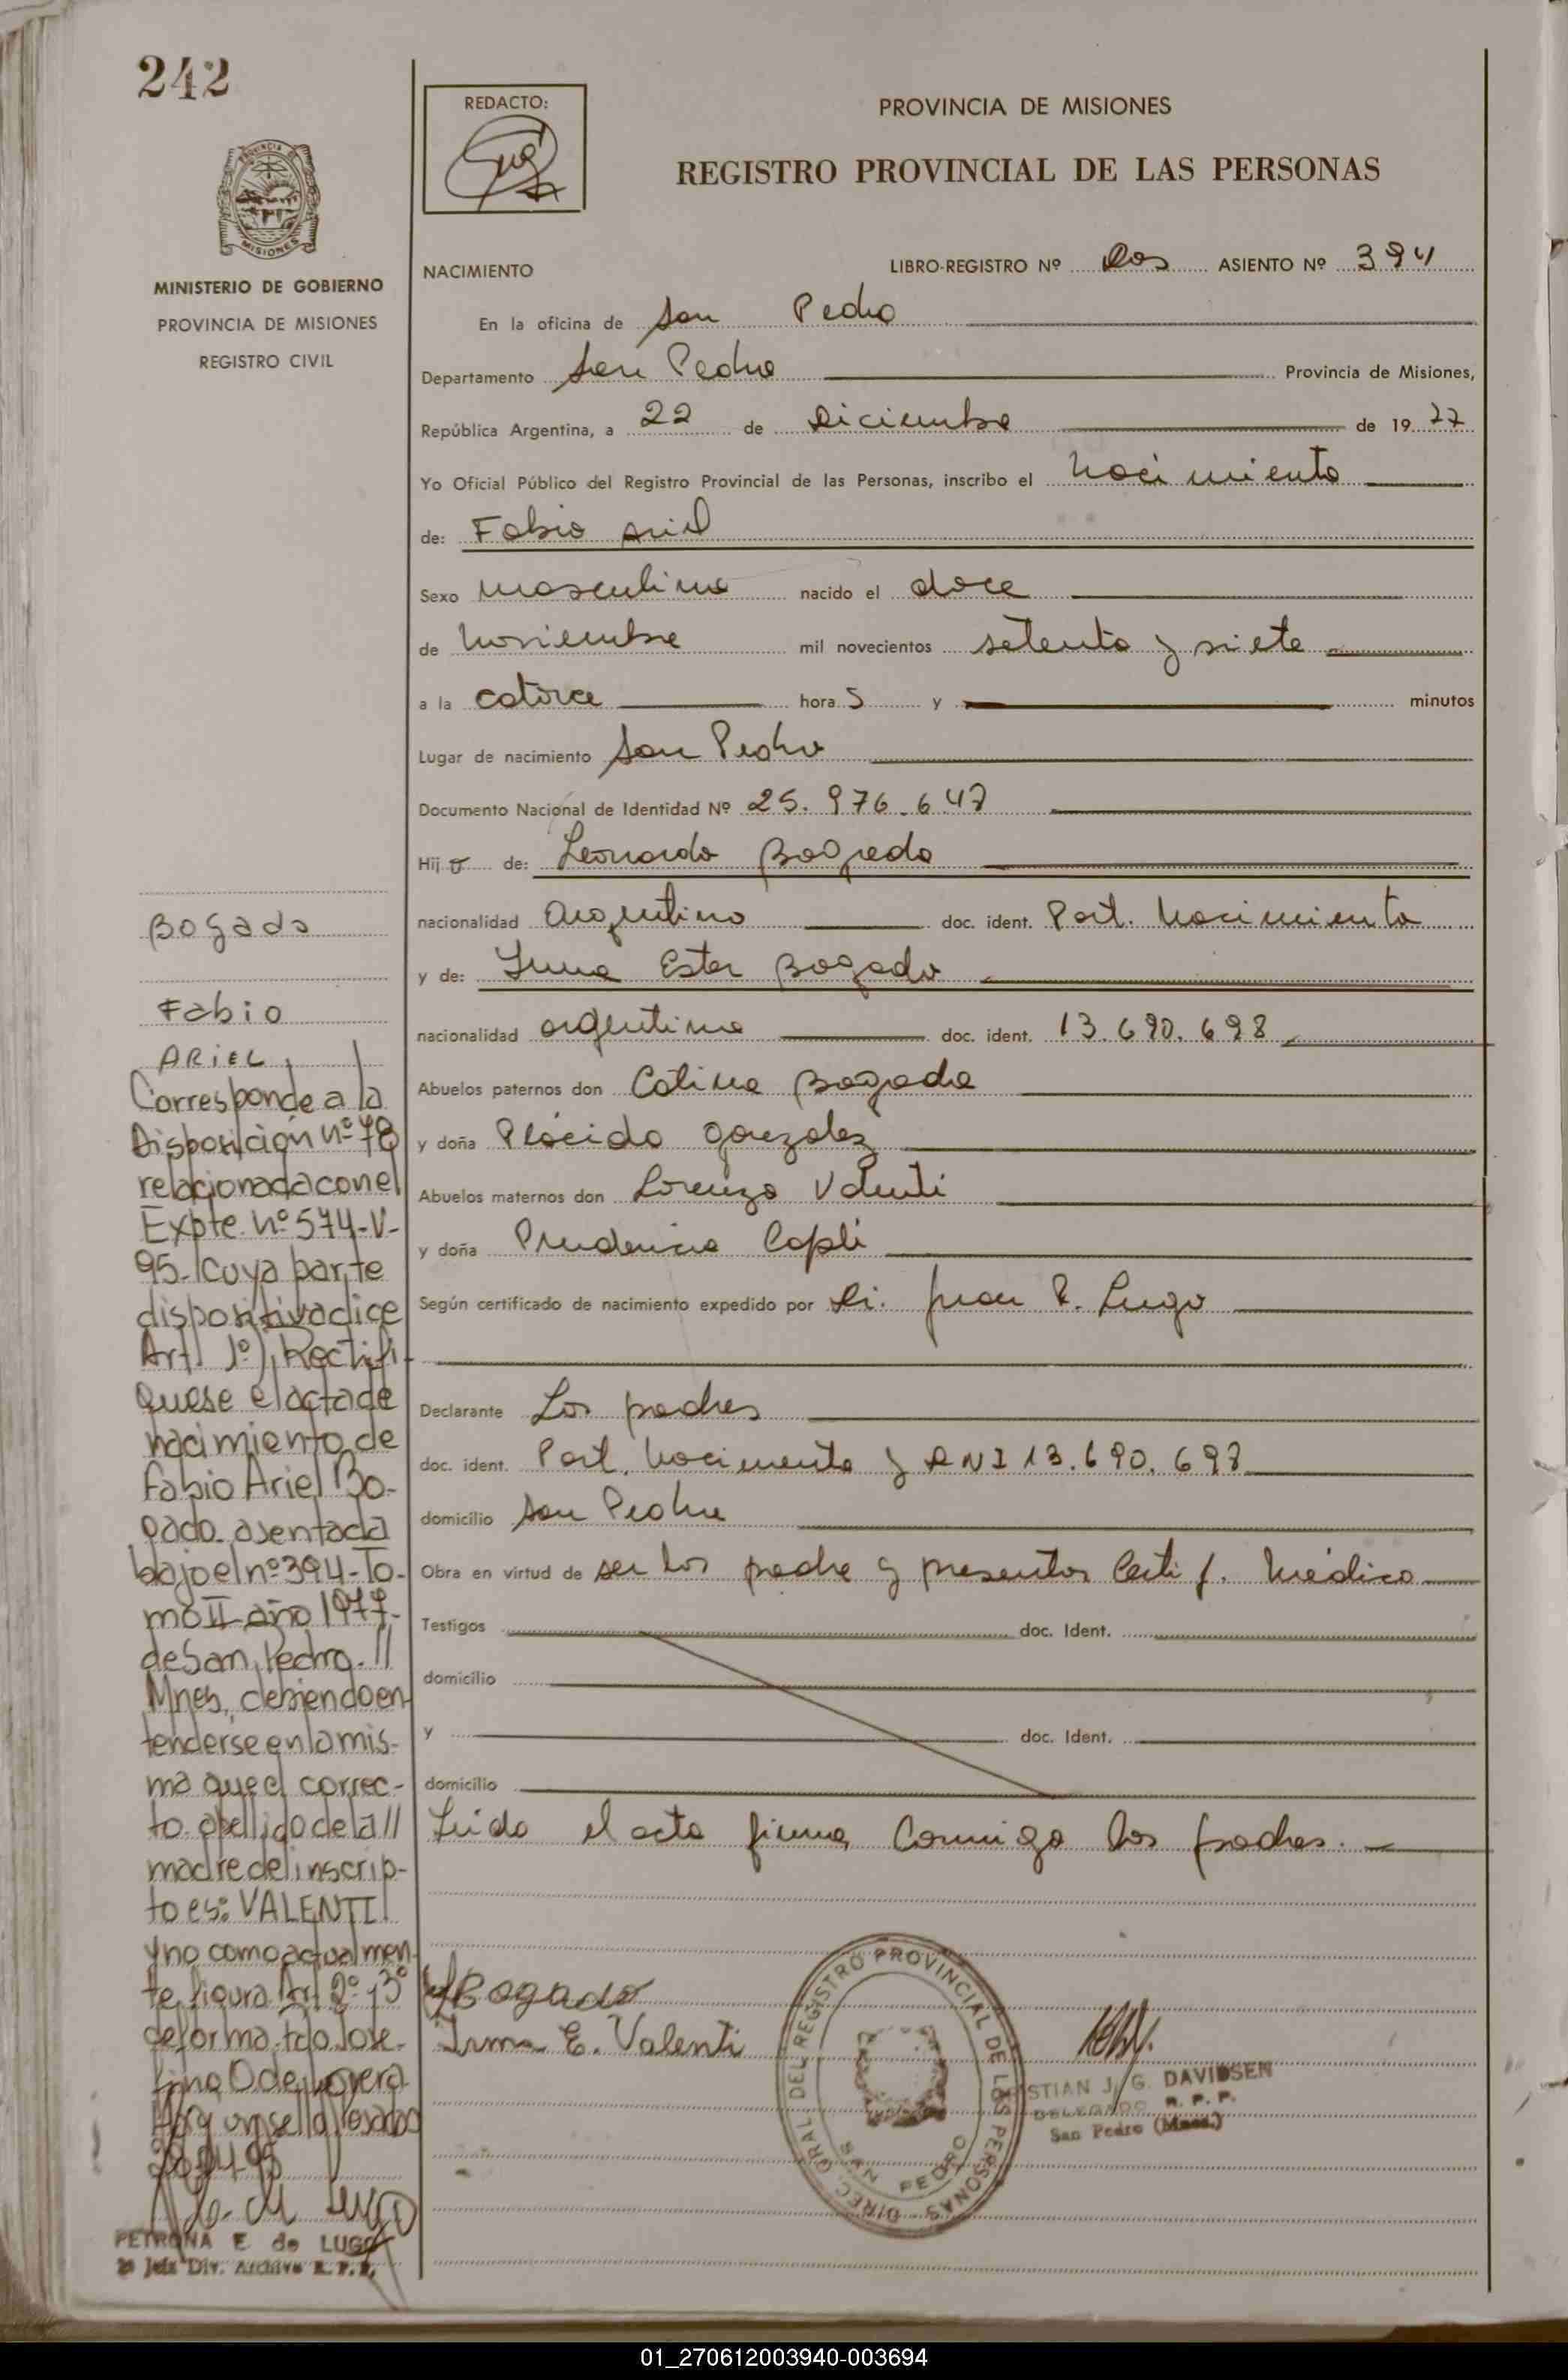 242
PROVINCIA DE MISIONES
MINISTERIO DE GOBIERNO
PROVINCIA DE MISIONES
REGISTRO CIVIL
Bogado
Fabio
ARIEL
Corresponde a la
Disposición nº 78
relacionada con el
Expte. nº 574-V-
95- Cuya parte
dispositiva dice
Art 1º) Rectifi-
quese el acta de
nacimiento de
Fabio Ariel Bo-
gado. asentada
bajo el nº 394- To-
mo II año 1977-
de San Pedro. //
Mnes, debiendo en
tenderse en la mis-
ma que el correc-
to apellido de la //
madre del inscrip-
to es: VALENTI
y no como actualmen
te figura Art 2º y 3º
de forma. fdo Jose-
fina O de Lovera
Hay un sello Posadas
PETRONA E. de LUGO
Jefe Div. Archivo R. P. P.
REDACTO:
PROVINCIA DE MISIONES
REGISTRO PROVINCIAL DE LAS PERSONAS
NACIMIENTO LIBRO-REGISTRO Nº Dos ASIENTO Nº 394
En la oficina de San Pedro
Departamento San Pedro Provincia de Misiones,
República Argentina, a 22 de Diciembre de 1977
Yo Oficial Público del Registro Provincial de las Personas, inscribo el Nacimiento
de: Fabio Ariel
Sexo masculino nacido el doce
de Noviembre mil novecientos setenta y siete
a la catorce hora s y minutos
Lugar de nacimiento San Pedro
Documento Nacional de Identidad Nº 25.976.647
Hijo de: Leonardo Bogado
nacionalidad Argentino doc. ident. Part. Nacimiento
y de: Irma Ester Bogado
nacionalidad argentina doc. ident. 13.690.698
Abuelos paternos don Catino Bogado
y doña Plácida Gonzalez
Abuelos maternos don Lorenzo Valenti
y doña Prudencia
Según certificado de nacimiento expedido por Dr. Juan R. Lugo
Declarante Los padres
doc. ident. Part. Nacimiento y DNI 13.690.698
domicilio San Pedro
Obra en virtud de ser los padre y presentar Certif. Médico
Testigos doc. Ident.
domicilio
y doc. Ident.
domicilio
Leido el acta firma conmigo los padres.
Bogado
Irma E. Valenti
DIREC. GRAL. DEL REGISTRO PROVINCIAL DE LAS PERSONAS
SAN PEDRO
STIAN J. G. DAVIDSEN
DELEGADO R. P. P.
San Pedro (Mnes.)
01_270612003940-003694